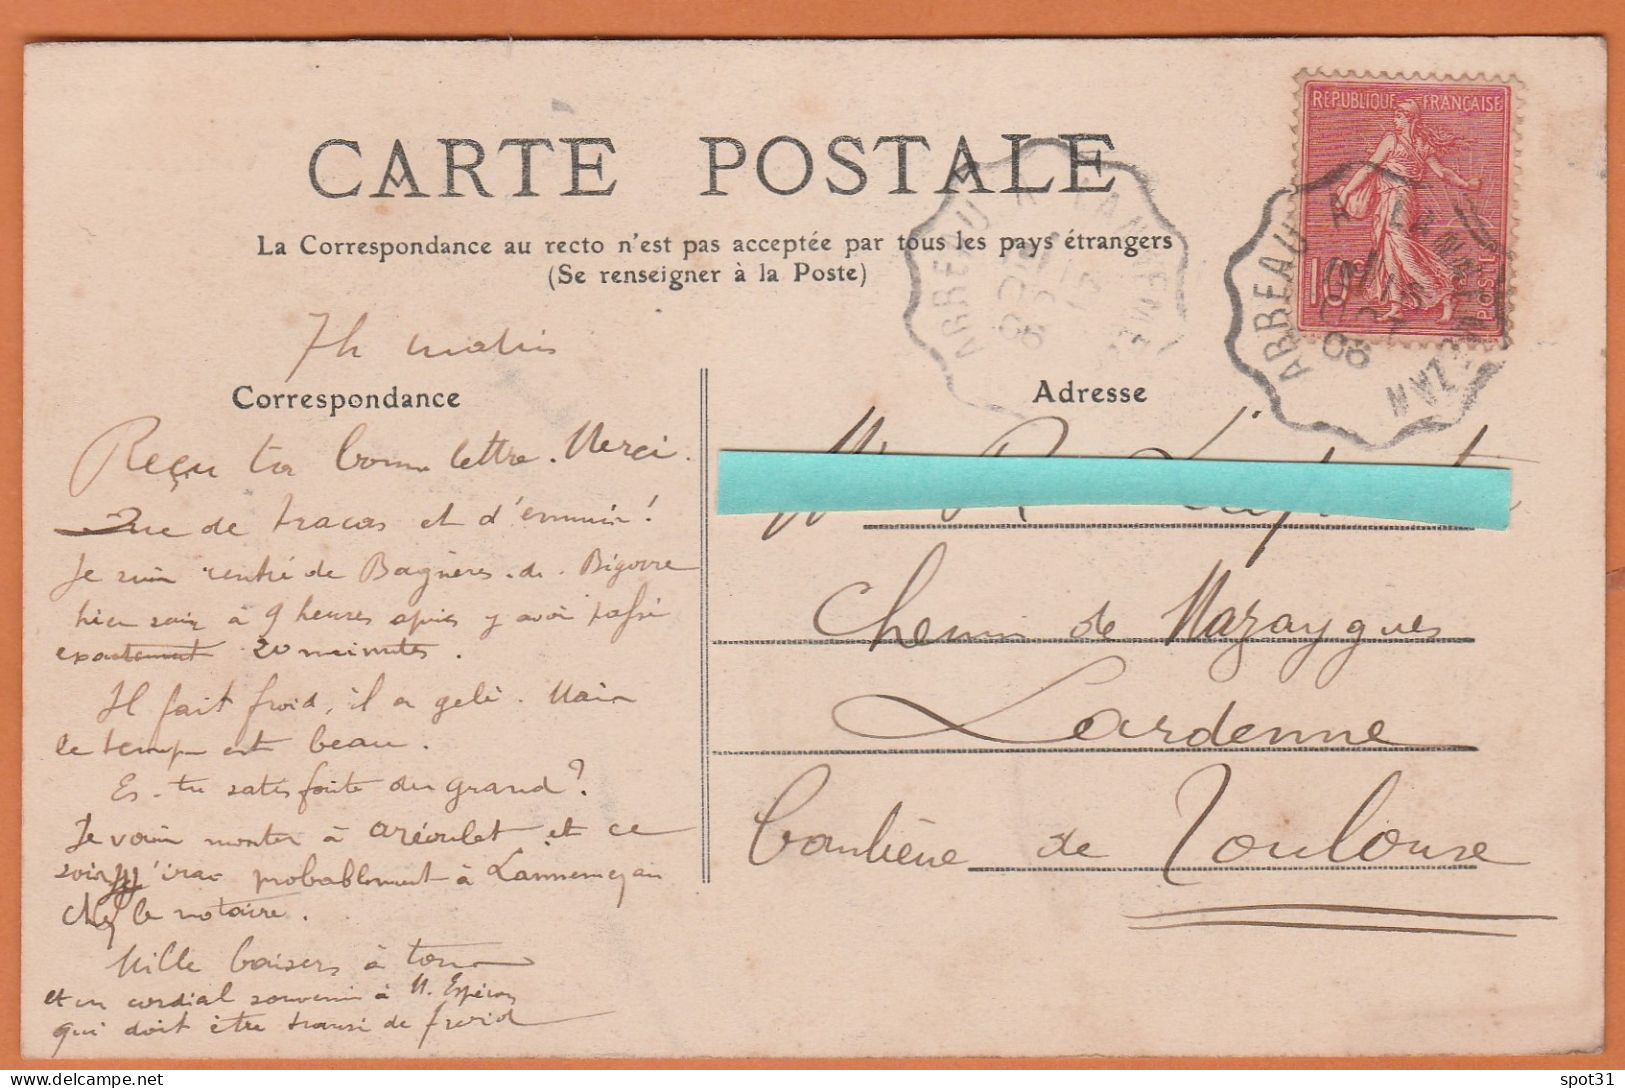 CARTE POSTALE
La Correspondance au recto n'est pas acceptée par tous les pays étrangers
(Se renseigner à la Poste)
REPUBLIQUE FRANÇAISE
10c
POSTES
ARREAU A LANNEMEZAN
ARREAU A LANNEMEZAN
7h matin
Correspondance
Adresse
Reçu ta bonne lettre. Merci.
Que de tracas et d'ennuis!
Je suis rentré de Bagnères-de-Bigorre
hier soir à 9 heures après y avoir passé
exactement 20 minutes.
Il fait froid, il a gelé. Mais
le temps est beau.
Es-tu satisfaite du grand?
Je vais monter à Aréoulet et ce
soir j'irai probablement à Lannemezan
chez le notaire.
Mille baisers à tous
et un cordial souvenir à M. Espéron
qui doit être transi de froid
Chemin de Mazaygues
Lardenne
banlieue de Toulouse
delcampe.net
spot31